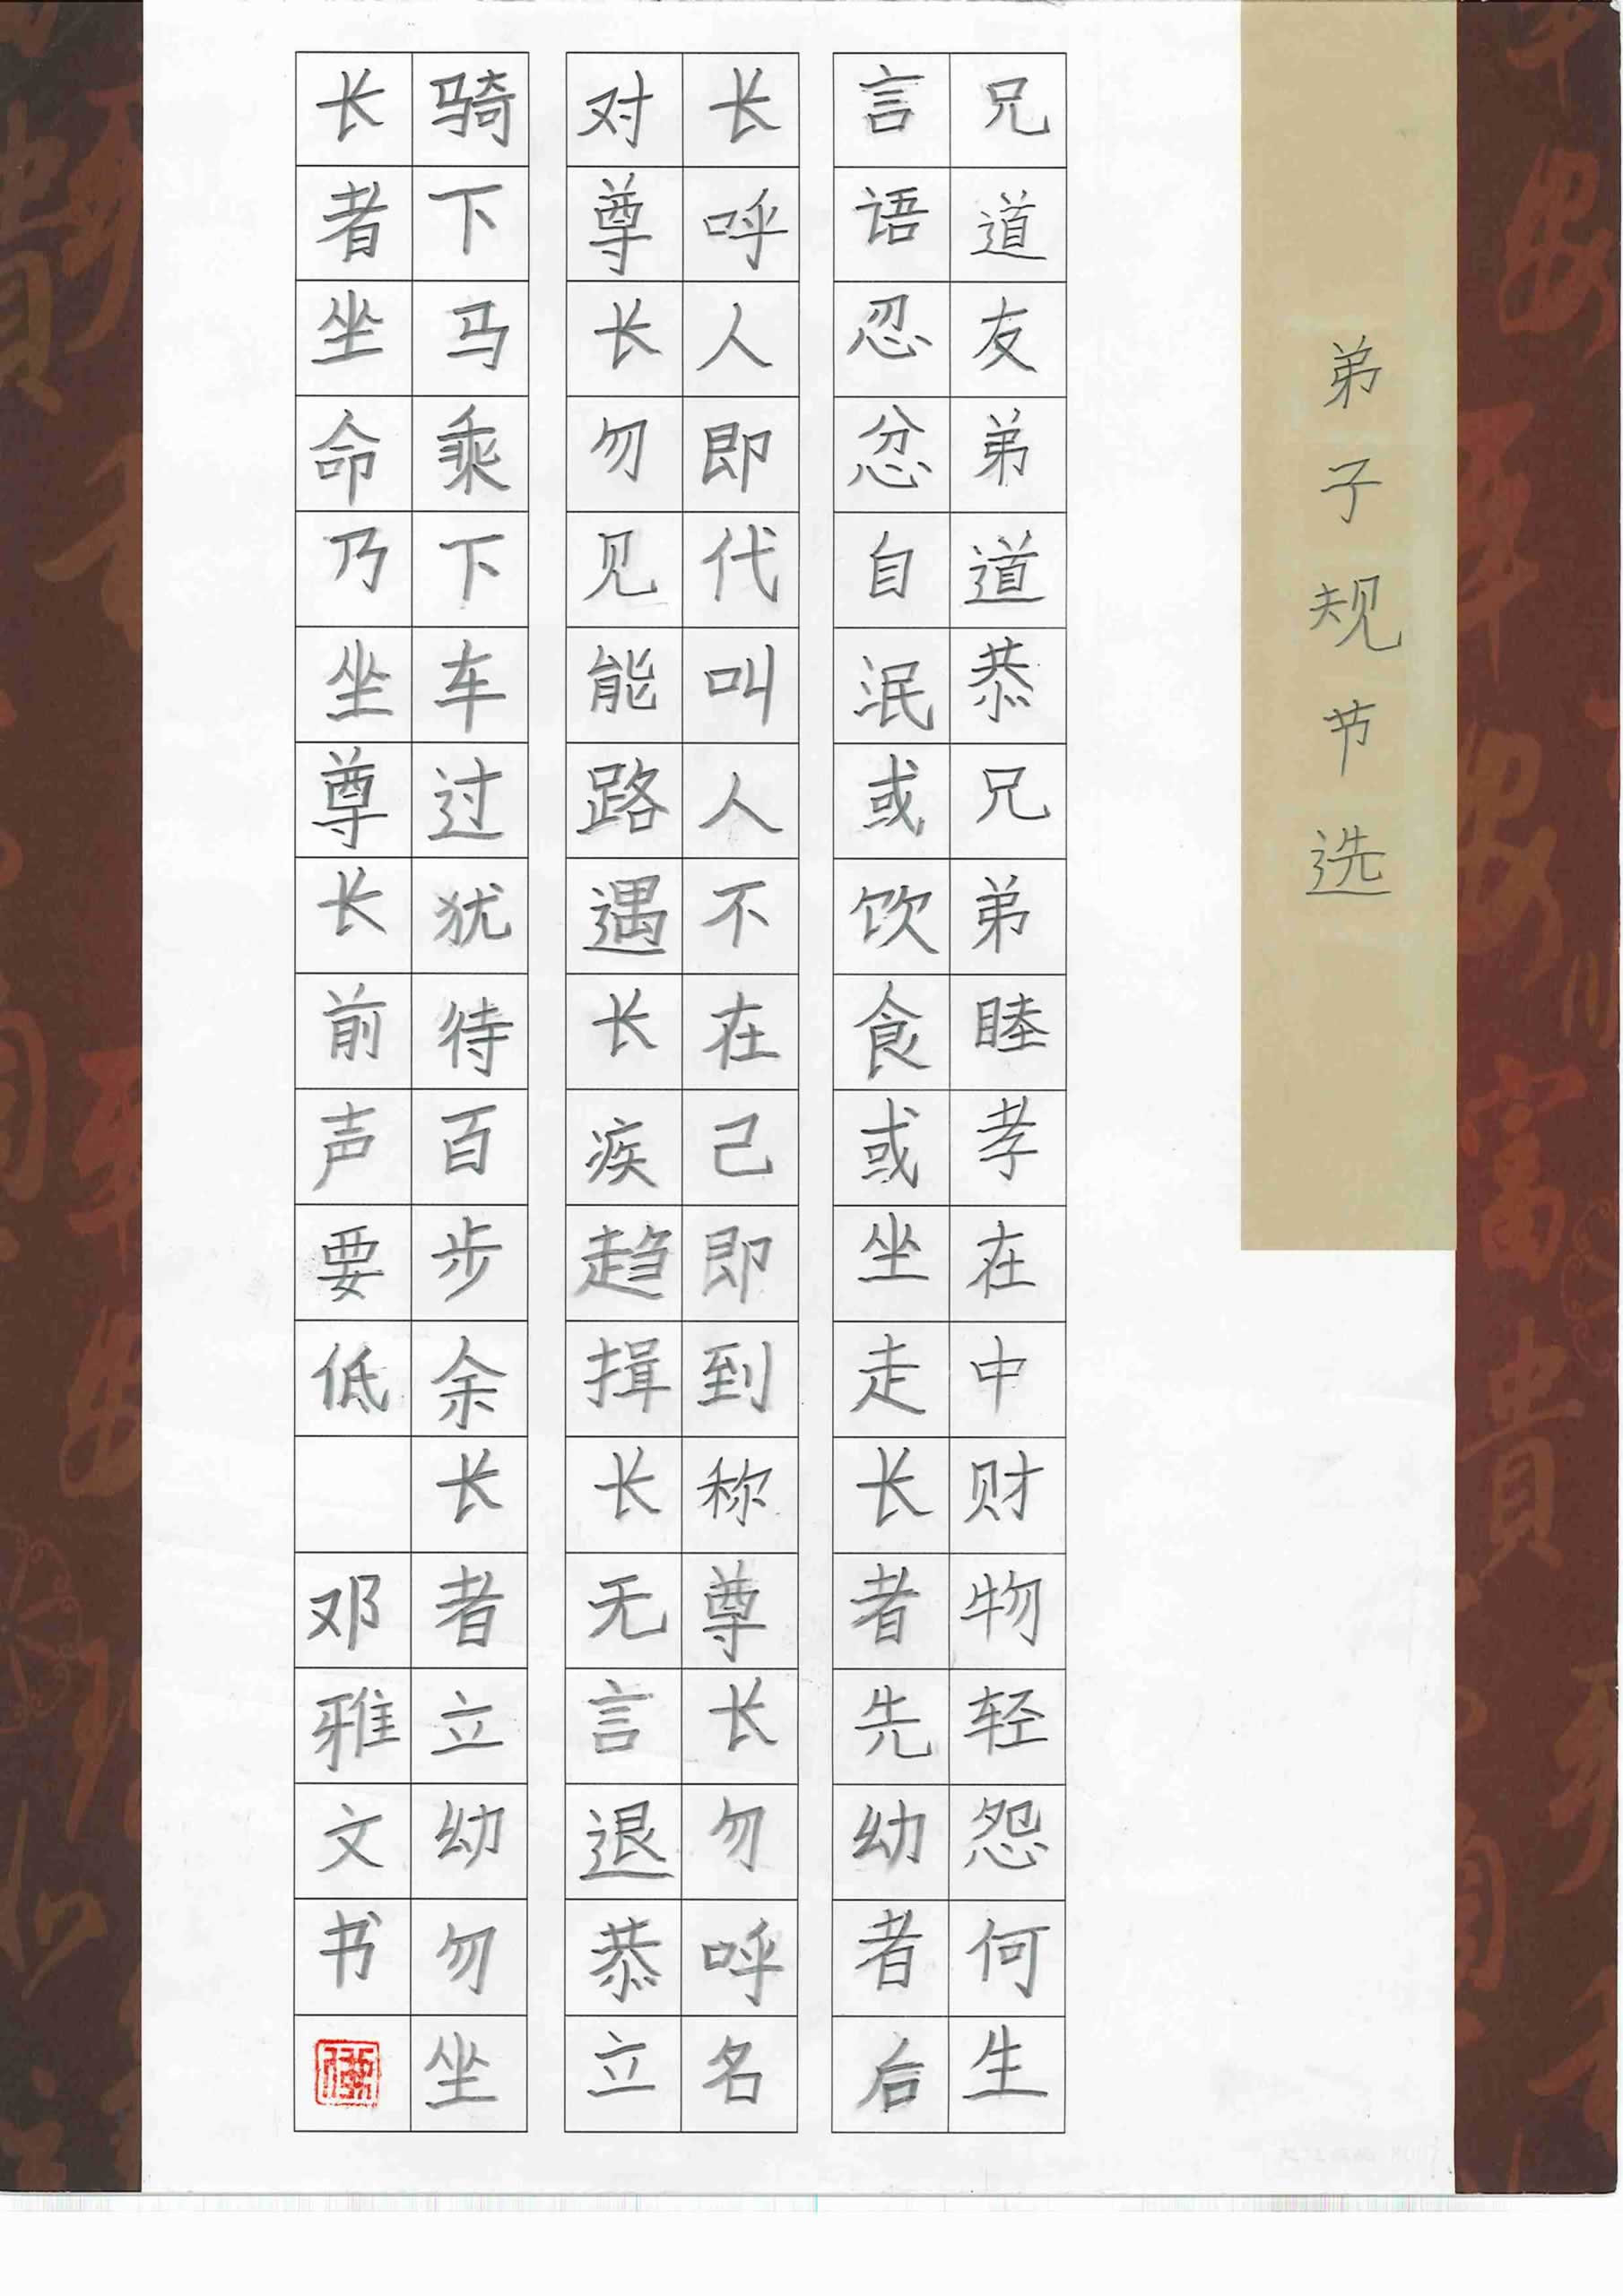 弟子规节选
兄道友弟道恭兄弟睦孝在中财物轻怨何生
言语忍忿自泯或饮食或坐走长者先幼者后
长呼人即代叫人不在己即到称尊长勿呼名
对尊长勿见能路遇长疾趋揖长无言退恭立
骑下马乘下车过犹待百步余长者立幼勿坐
长者坐命乃坐尊长前声要低 邓雅文书